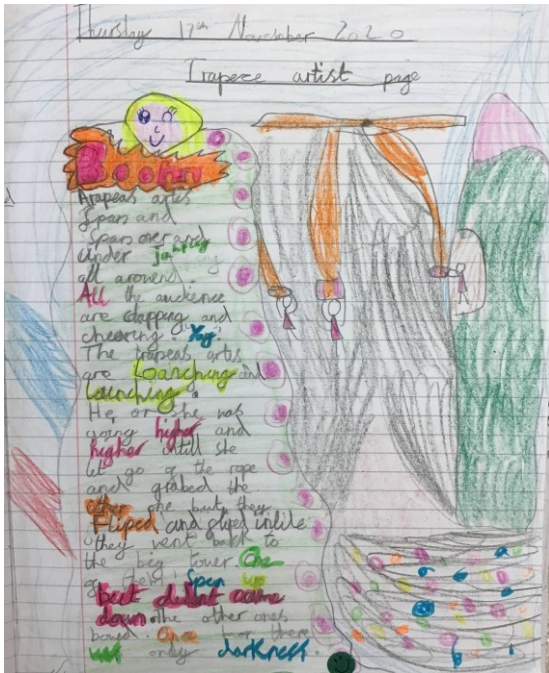 Thursday 17th November 2020
Trapeze artist page
Boohn
Arapeas artis
Spans and
Spans over and
under jumping
all around
All the audience
are clapping and
cheering. "Yay"
The trapeas artis
are Loanching and
Launching.
He or she was
going higher and
higher intill she
let go of the rope
and grabed the
other one but they
Fliped and fliped intile
they went back to
the big tower. One
of them Spen up
but didint came
down. the other ones
bowd. Once mor there
was only darkness.